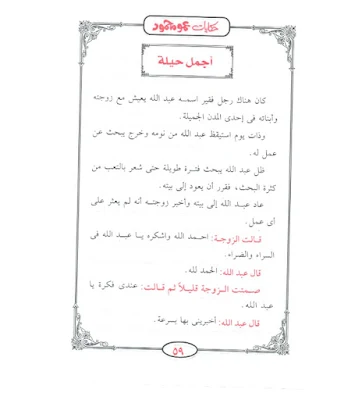 حكايات عمو محمود
أجمل حيلة
كان هناك رجل فقير اسمه عبد الله يعيش مع زوجته
وأبنائه فى إحدى المدن الجميلة.
وذات يوم استيقظ عبد الله من نومه وخرج يبحث عن
عمل له.
ظل عبد الله يبحث فترة طويلة حتى شعر بالتعب من
كثرة البحث، فقرر أن يعود إلى بيته.
عاد عبد الله إلى بيته وأخبر زوجته أنه لم يعثر على
أى عمل.
قالت الزوجة: احمد الله واشكره يا عبد الله فى
السراء والضراء.
قال عبد الله: الحمد لله.
صمتت الزوجة قليلاً ثم قالت: عندى فكرة يا
عبد الله.
قال عبد الله: أخبرينى بها بسرعة.
٥٩